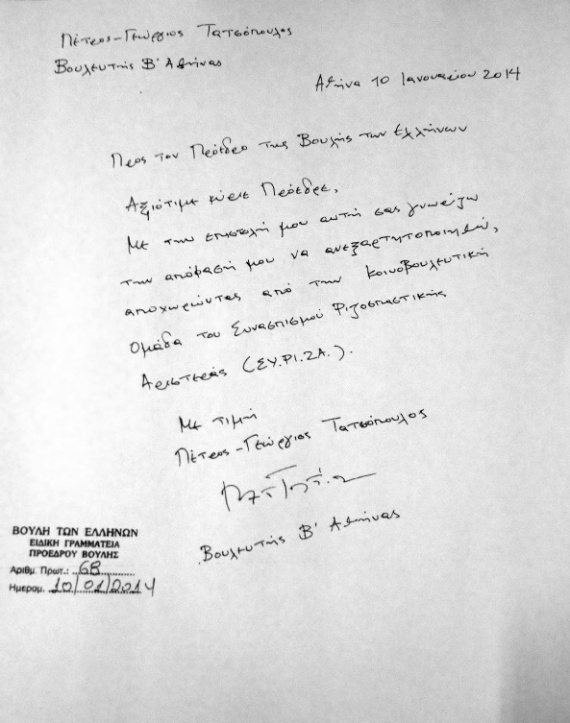 Πέτρος-Γεώργιος Τατσόπουλος
Βουλευτής Β' Αθήνας
Αθήνα 10 Ιανουαρίου 2014
Προς τον Πρόεδρο της Βουλής των Ελλήνων
Αξιότιμε κύριε Πρόεδρε,
Με την επιστολή μου αυτή σας γνωρίζω
την απόφασή μου να ανεξαρτητοποιηθώ,
αποχωρώντας από την Κοινοβουλευτική
Ομάδα του Συνασπισμού Ριζοσπαστικής
Αριστεράς (ΣΥ.ΡΙ.ΖΑ.).
Με τιμή
Πέτρος-Γεώργιος Τατσόπουλος
Βουλευτής Β' Αθήνας
ΒΟΥΛΗ ΤΩΝ ΕΛΛΗΝΩΝ
ΕΙΔΙΚΗ ΓΡΑΜΜΑΤΕΙΑ
ΠΡΟΕΔΡΟΥ ΒΟΥΛΗΣ
Αριθμ. Πρωτ.: 68
Ημερομ. 10/01/2014